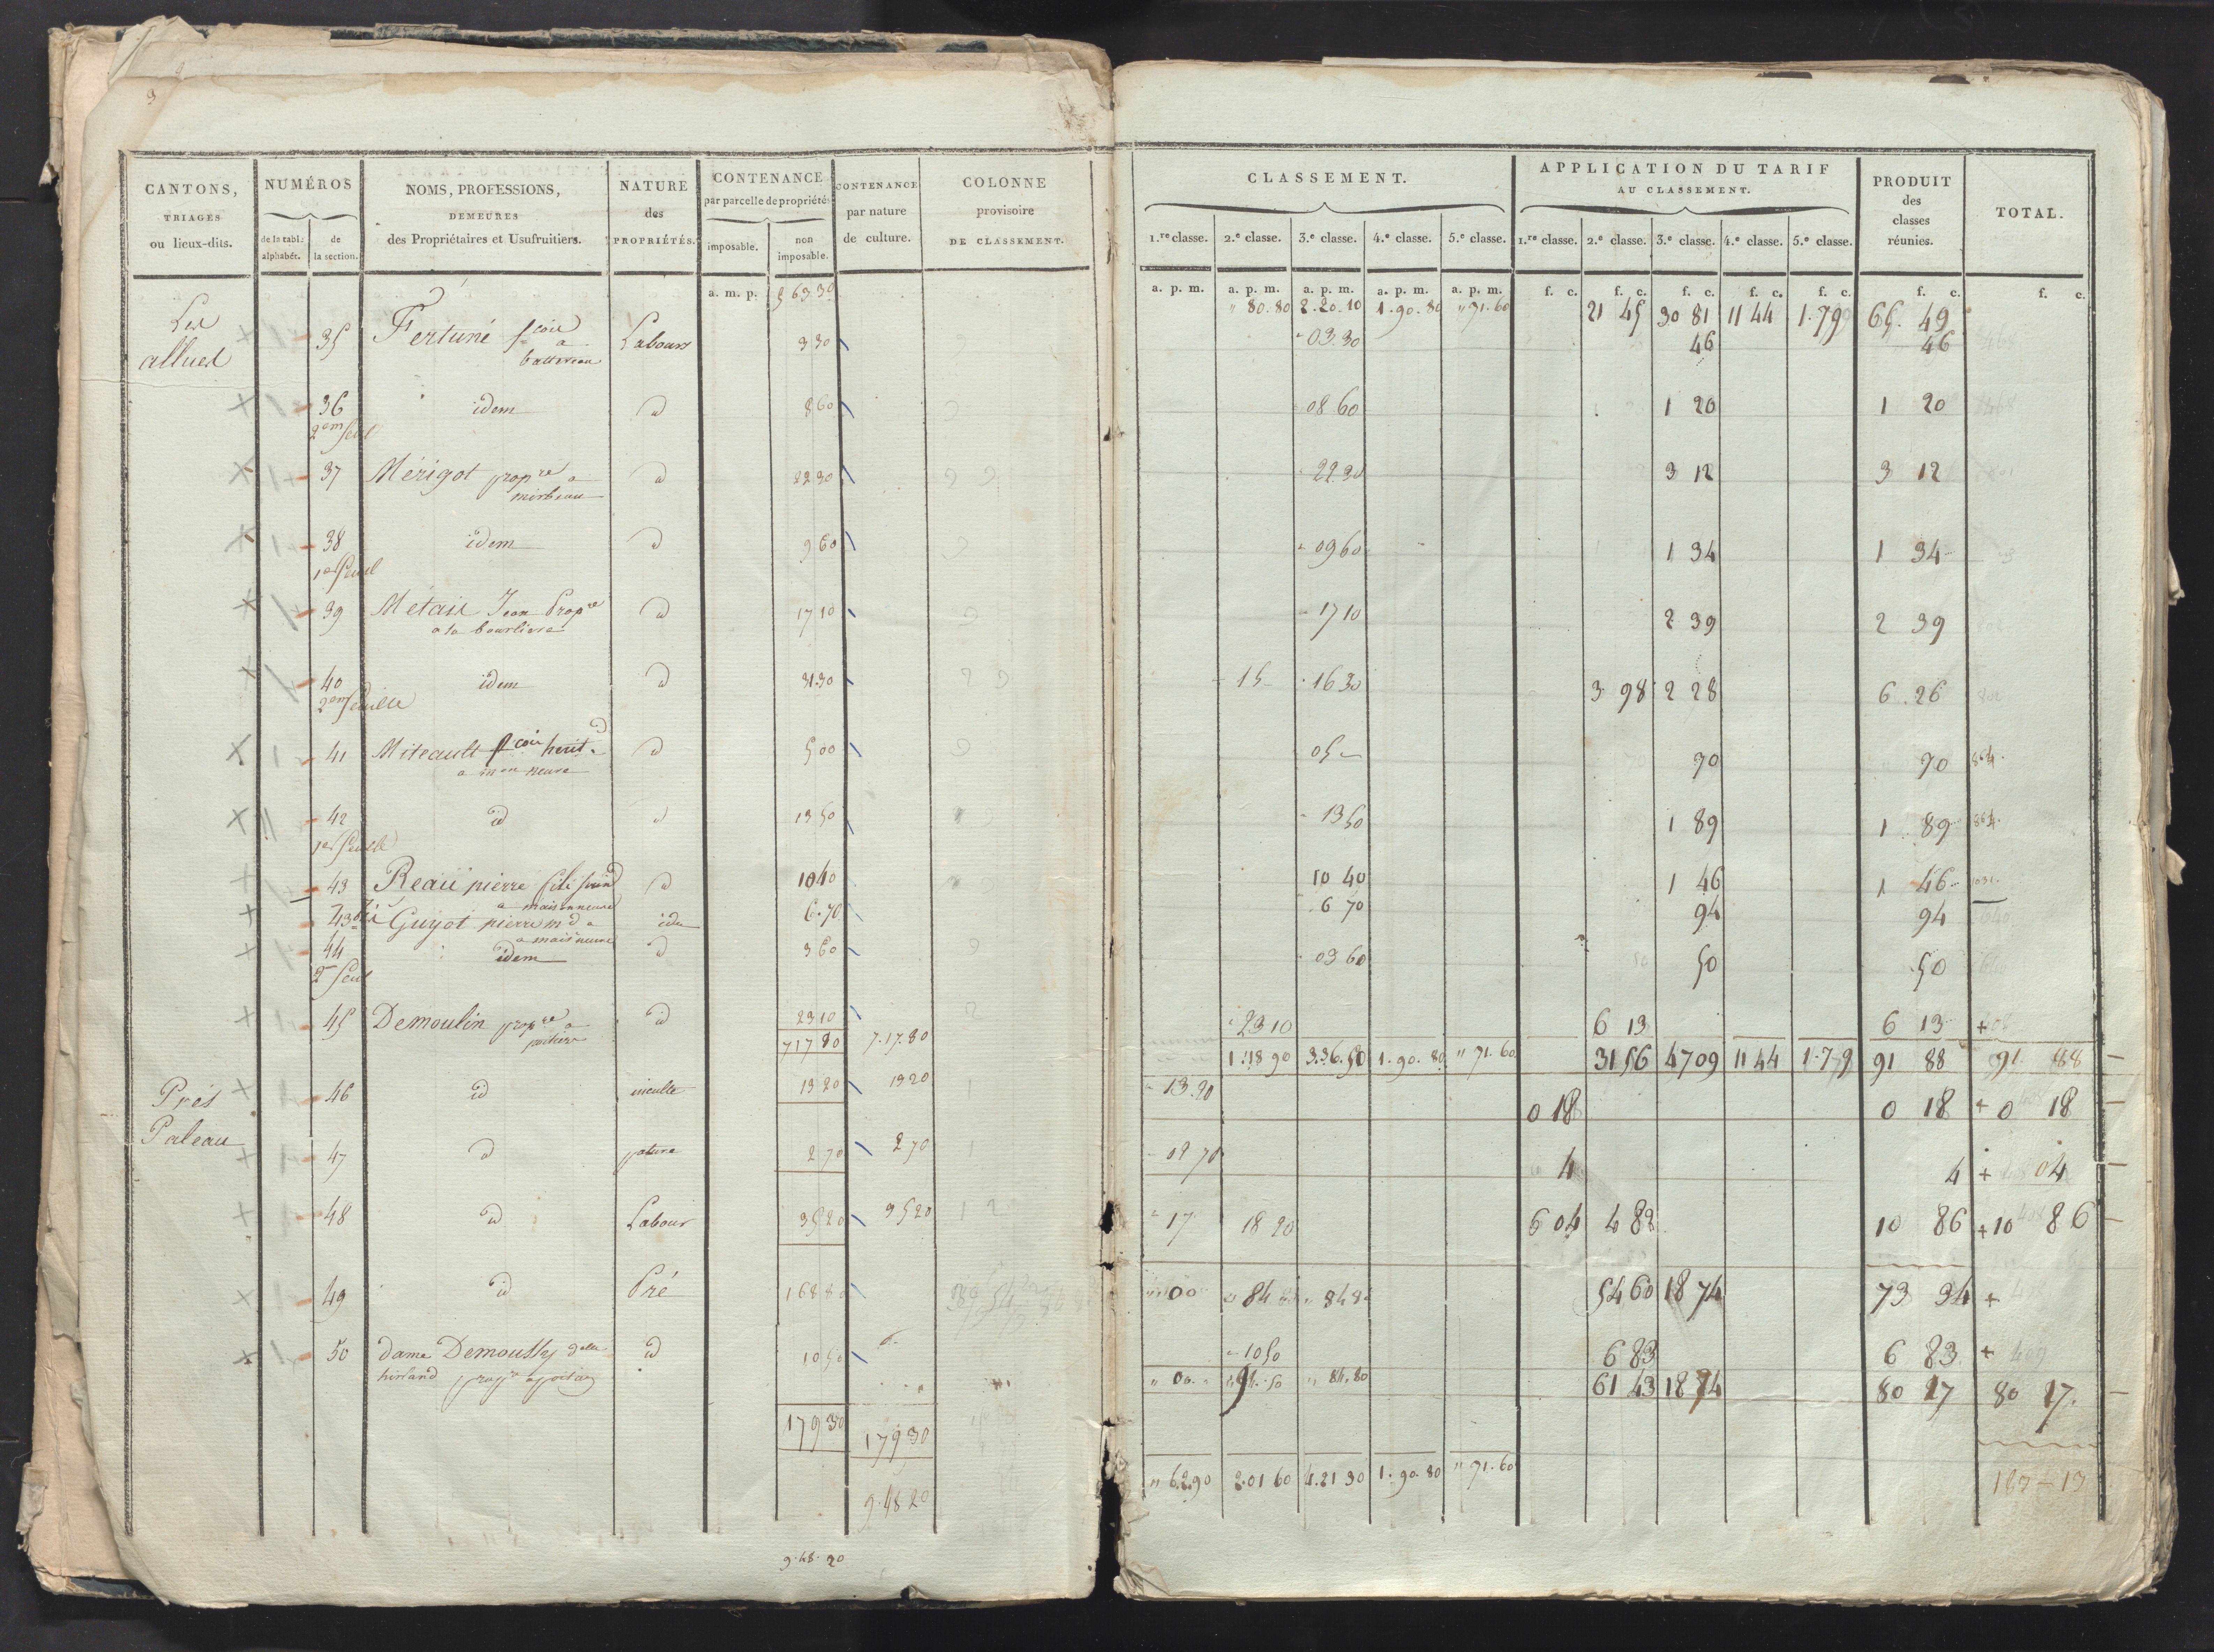 CANTONS, TRIAGES ou lieux-dits. NUMÉROS de la tabl: alphabét. de la section. NOMS, PROFESSIONS, DEMEURES des Propriétaires et Usufruitiers. NATURE des PROPRIÉTÉS. CONTENANCE par parcelle de propriétés imposable. non imposable. CONTENANCE par nature de culture. COLONNE provisoire DE CLASSEMENT.
CLASSEMENT. 1.re classe. 2.e classe. 3.e classe. 4.e classe. 5.e classe. APPLICATION DU TARIF AU CLASSEMENT. 1.re classe. 2.e classe. 3.e classe. 4.e classe. 5.e classe. PRODUIT des classes réunies. TOTAL.
a. m. p. 5 63 30 a. p. m. a. p. m. a. p. m. a. p. m. a. p. m. f. c. f. c. f. c. f. c. f. c. f. c. f. c.
" 80.80 2.20.10 1.90.80 " 71.60 21 45 30 81 11 44 1.79 65. 49
Les alluet 35 Fertuné a batterau Labour 3 30 03.30 46 46
36 idem d 8 60 08 60 1 20 1 20
37 Mérigot prop re a mirbeau d 22 30 22.30 3 12 3 12
38 idem d 9 60 09 60 1 34 1 34
39 Metais Jean Prop re a la bourliere d 17 10 17 10 2 39 2 39
40 idem d 31.30 15 16 30 3 98 2 28 6.26
41 Miteault herit. d 5 00 05 70 70 864
42 d d 13 50 13 50 1 89 1 89 864
43 Reau pierre a maisonneuve d 10 40 10 40 1 46 1 46
43 bis Guyot pierre m d a idem 6.70 6 70 94 94
44 a mais neuve idem d 3 60 03 60 50 50
45 Demoulin prop re a poitiers d 23 10 23 10 6 13 6 13 +
7 17 80 7.17.80 1.18 90 3.36.50 1.90.80 " 71.60 31 56 47 09 11 44 1.79 91 88 91 88
Prés Paleau 46 d inculte 13 20 13 20 13.20 0 18 0 18 + 0 18
47 d pature 2 70 2 70 02 70 4 4 + 04
48 d Labour 35 20 35 20 17 18 20 6 04 4 82 10 86 + 10 86
49 d Pré 168 80 " 00 " 84 " 84 80 54 60 18 74 73 34 +
50 dame Demoussy d 10 50 10 50 6 83 6 83 +
" 00 " 94.50 " 84.80 61 43 18 74 80 17 80 17.
179 30 179 30
9.48 20 " 62 90 2.01 60 4.21 30 1.90.80 " 71.60
9.48.20